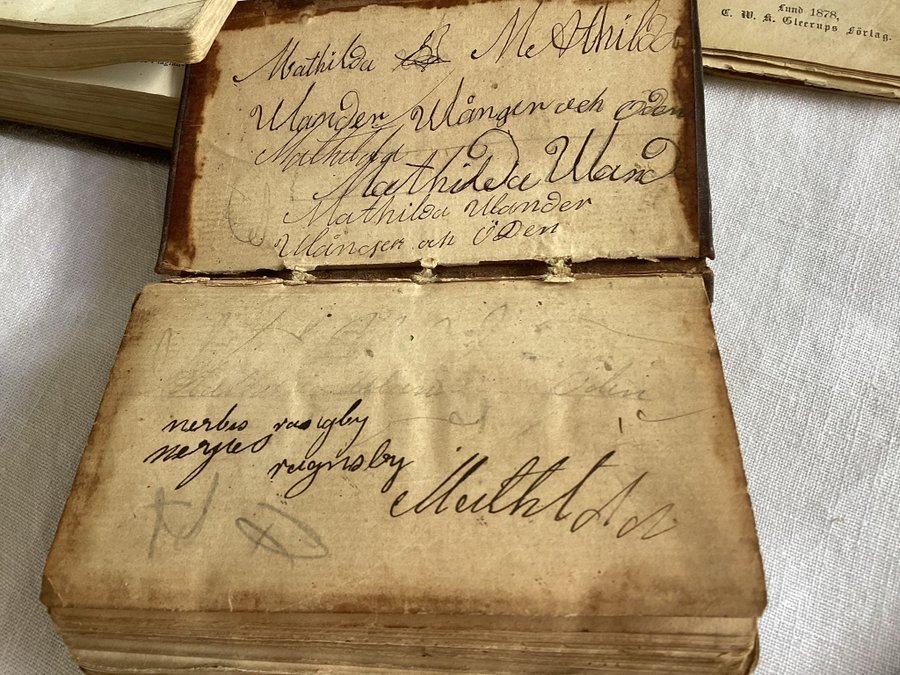 Lund 1878,
C. W. K. Gleerups Förlag.
Mathilda Methilda
Ulander Ulånger och öden
Mathilda
Mathilda Uland
Mathilda Ulander
Ulånger och ÖDen
Öden
nerbes rasigby
nerges
ragnsby
Mathilda